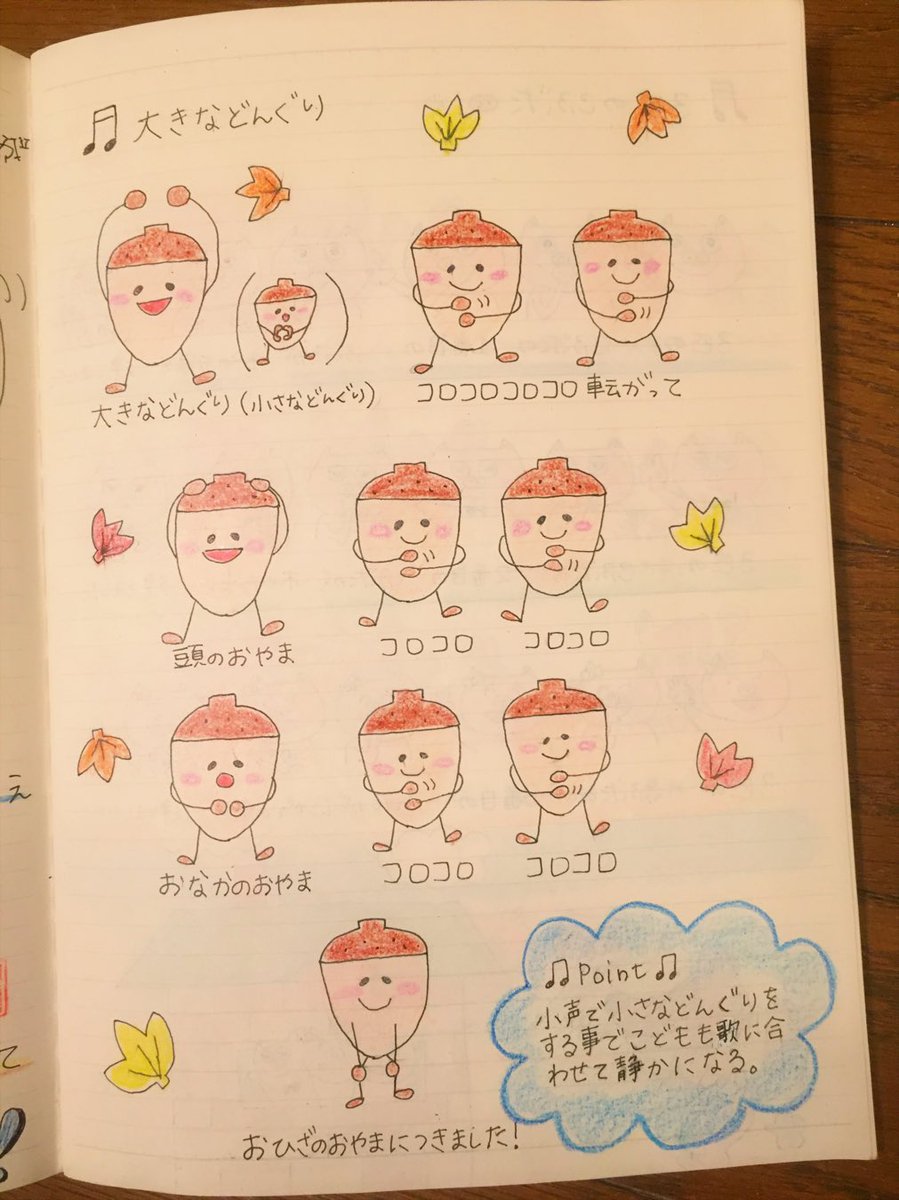 ♫ 大きなどんぐり
大きなどんぐり(小さなどんぐり)
コロコロコロコロ 転がって
頭のおやま
コロコロ
コロコロ
おなかのおやま
コロコロ
コロコロ
おひざのおやまにつきました!
♫ Point ♫
小声で小さなどんぐりを
する事でこどもも歌に合
わせて静かになる。
が
え
て